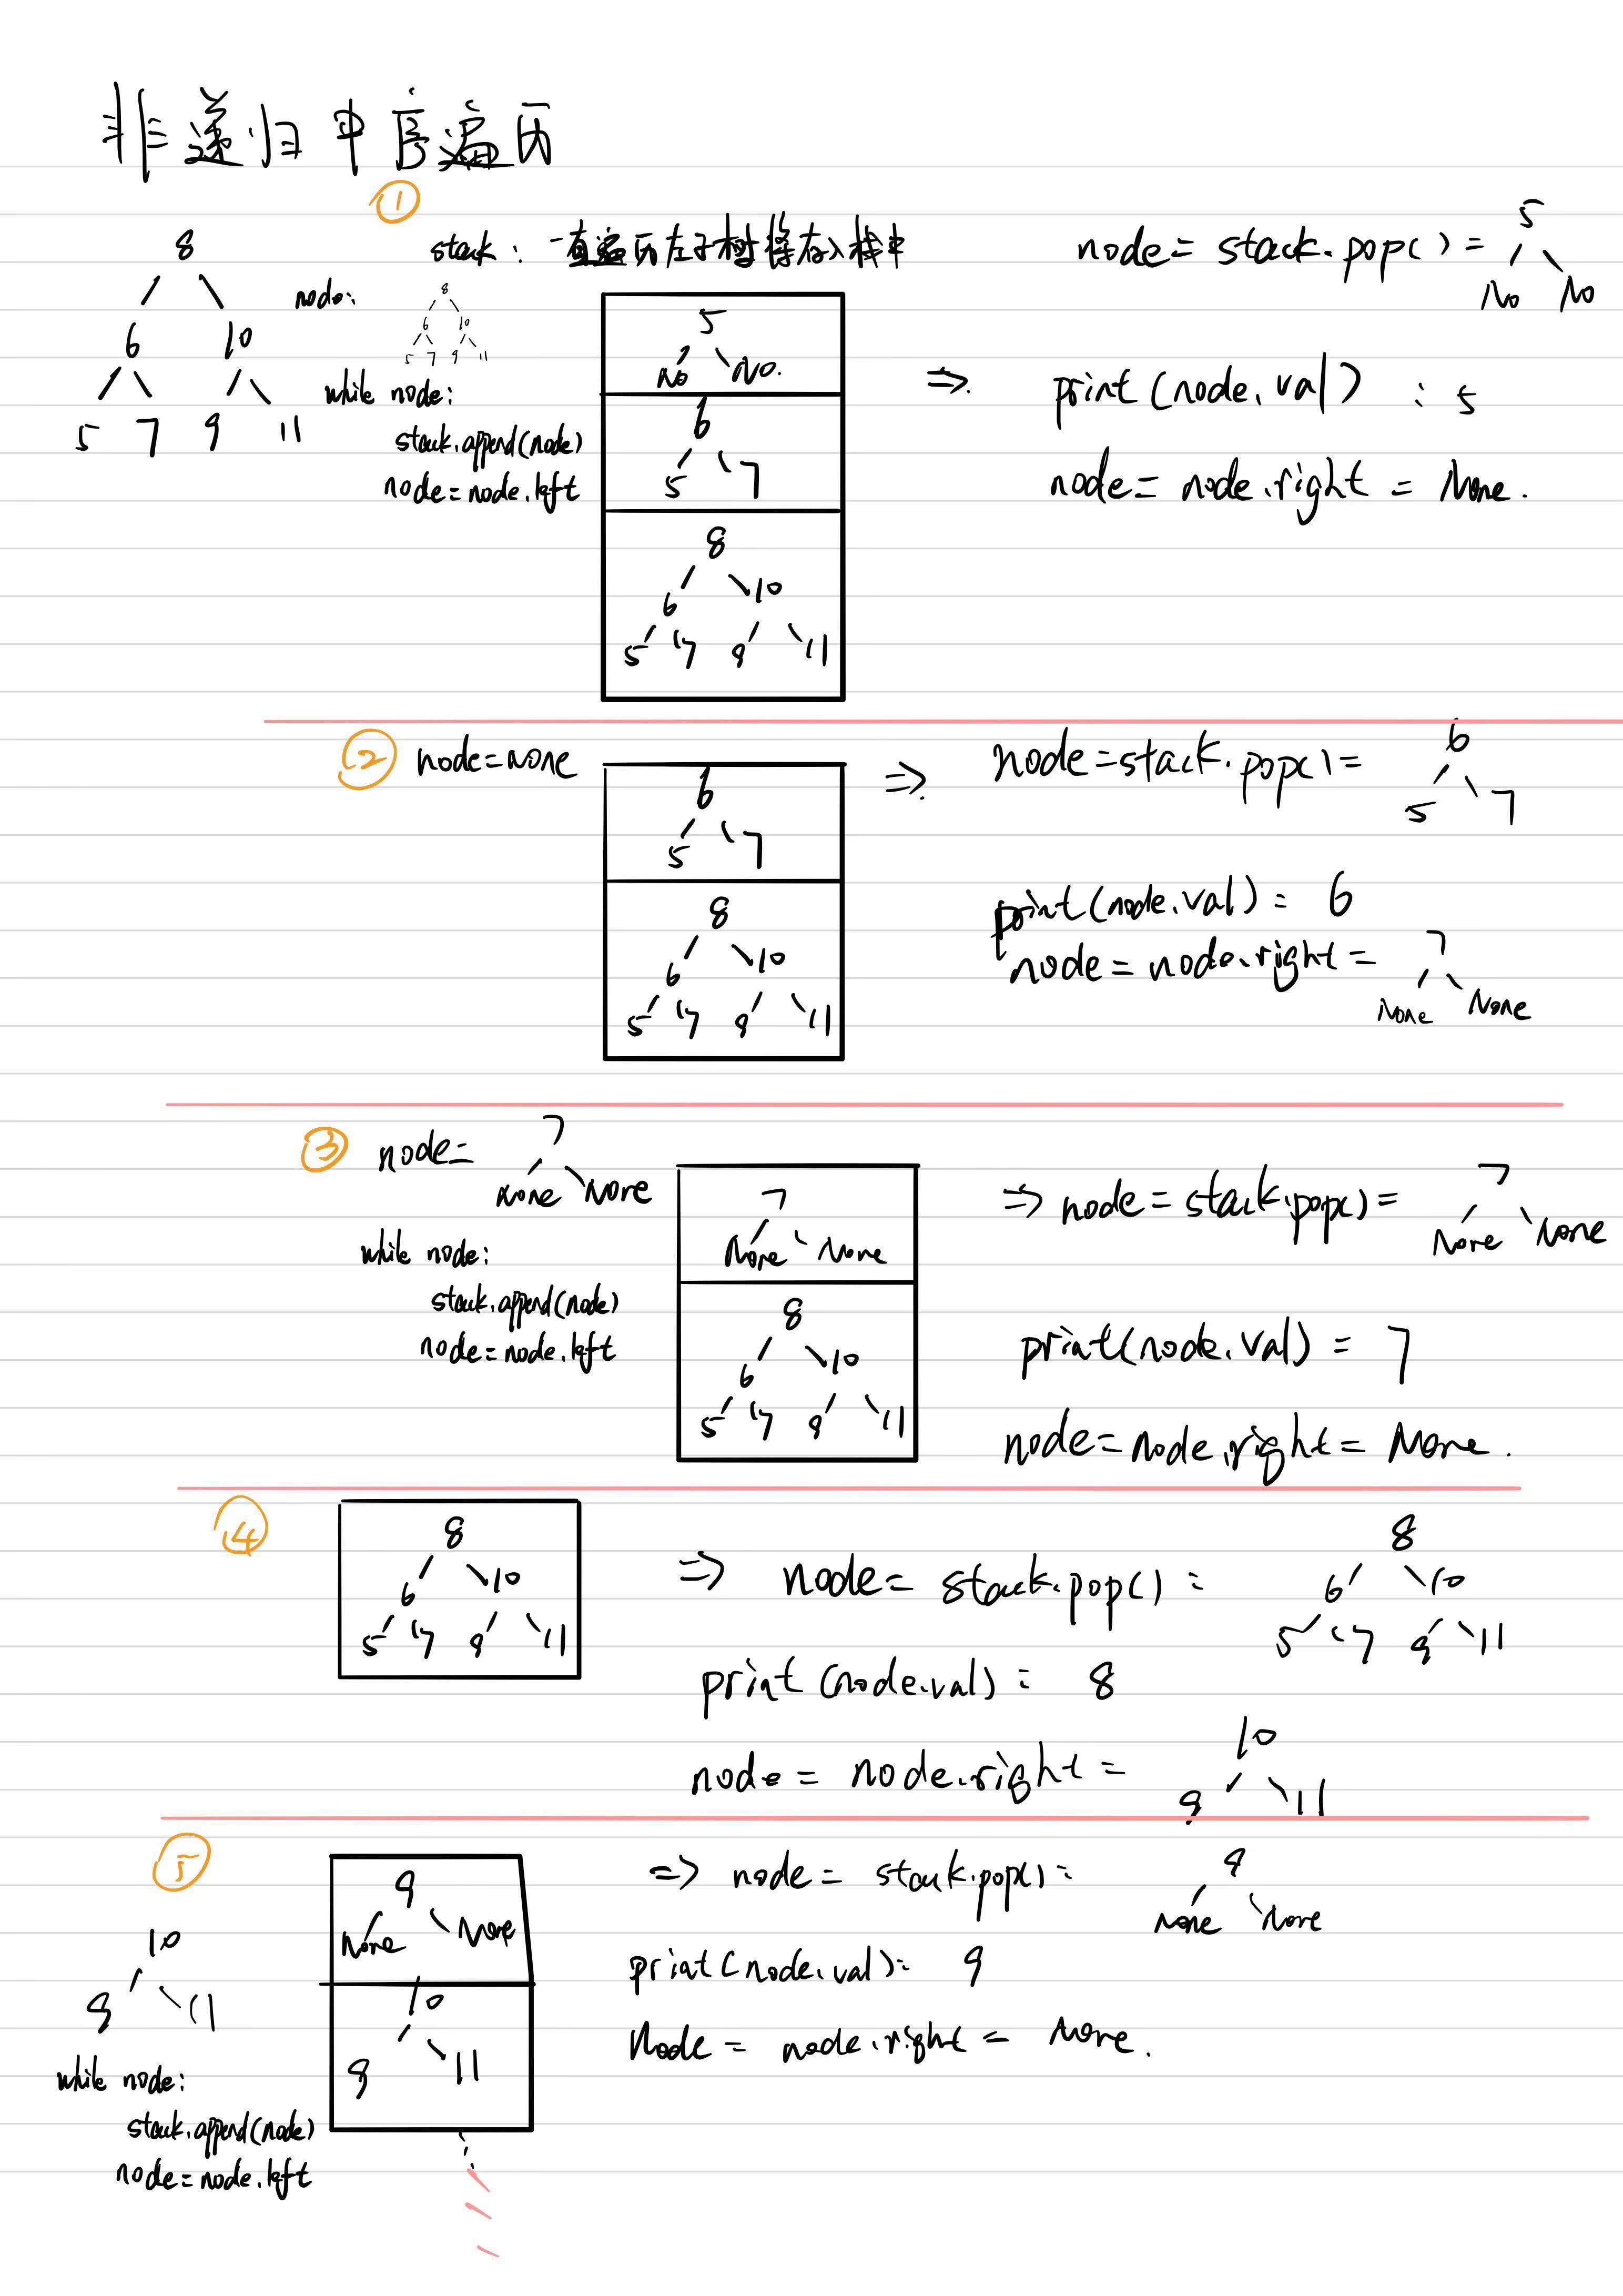 非递归中序遍历
①
stack: 一直遍历左子树将存入栈中
8
6 10
5 7 9 11
node:
8
6 10
5 7 9 11
while node:
stack.append(node)
node=node.left
5
No No.
6
5 7
8
6 10
5 7 9 11
⇒
node= stack.pop()=
5
No No
print(node.val) : 5
node= node.right = None.
② node=None
6
5 7
8
6 10
5 7 9 11
⇒
node=stack.pop()=
6
5 7
print(node.val): 6
node= node.right =
7
None None
③ node=
7
None None
while node:
stack.append(node)
node=node.left
7
None None
8
6 10
5 7 9 11
⇒ node=stack.pop()=
7
None None
print(node.val) = 7
node=node.right= None.
④
8
6 10
5 7 9 11
⇒ node= stack.pop() =
8
6 10
5 7 9 11
print(node.val): 8
node= node.right =
10
9 11
⑤
10
9 11
while node:
stack.append(node)
node=node.left
9
None None
10
9 11
⇒ node= stack.pop()=
9
None None
print(node.val): 9
Node= node.right= None.